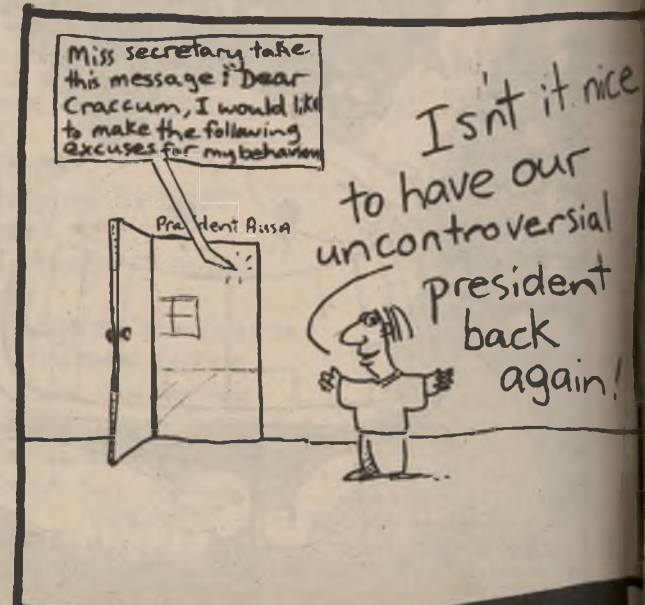 Miss secretary take
this message: "Dear
Craccum, I would like
to make the following
excuses for my behaviour
President AUSA
Isnt it nice
to have our
uncontroversial
president
back
again!